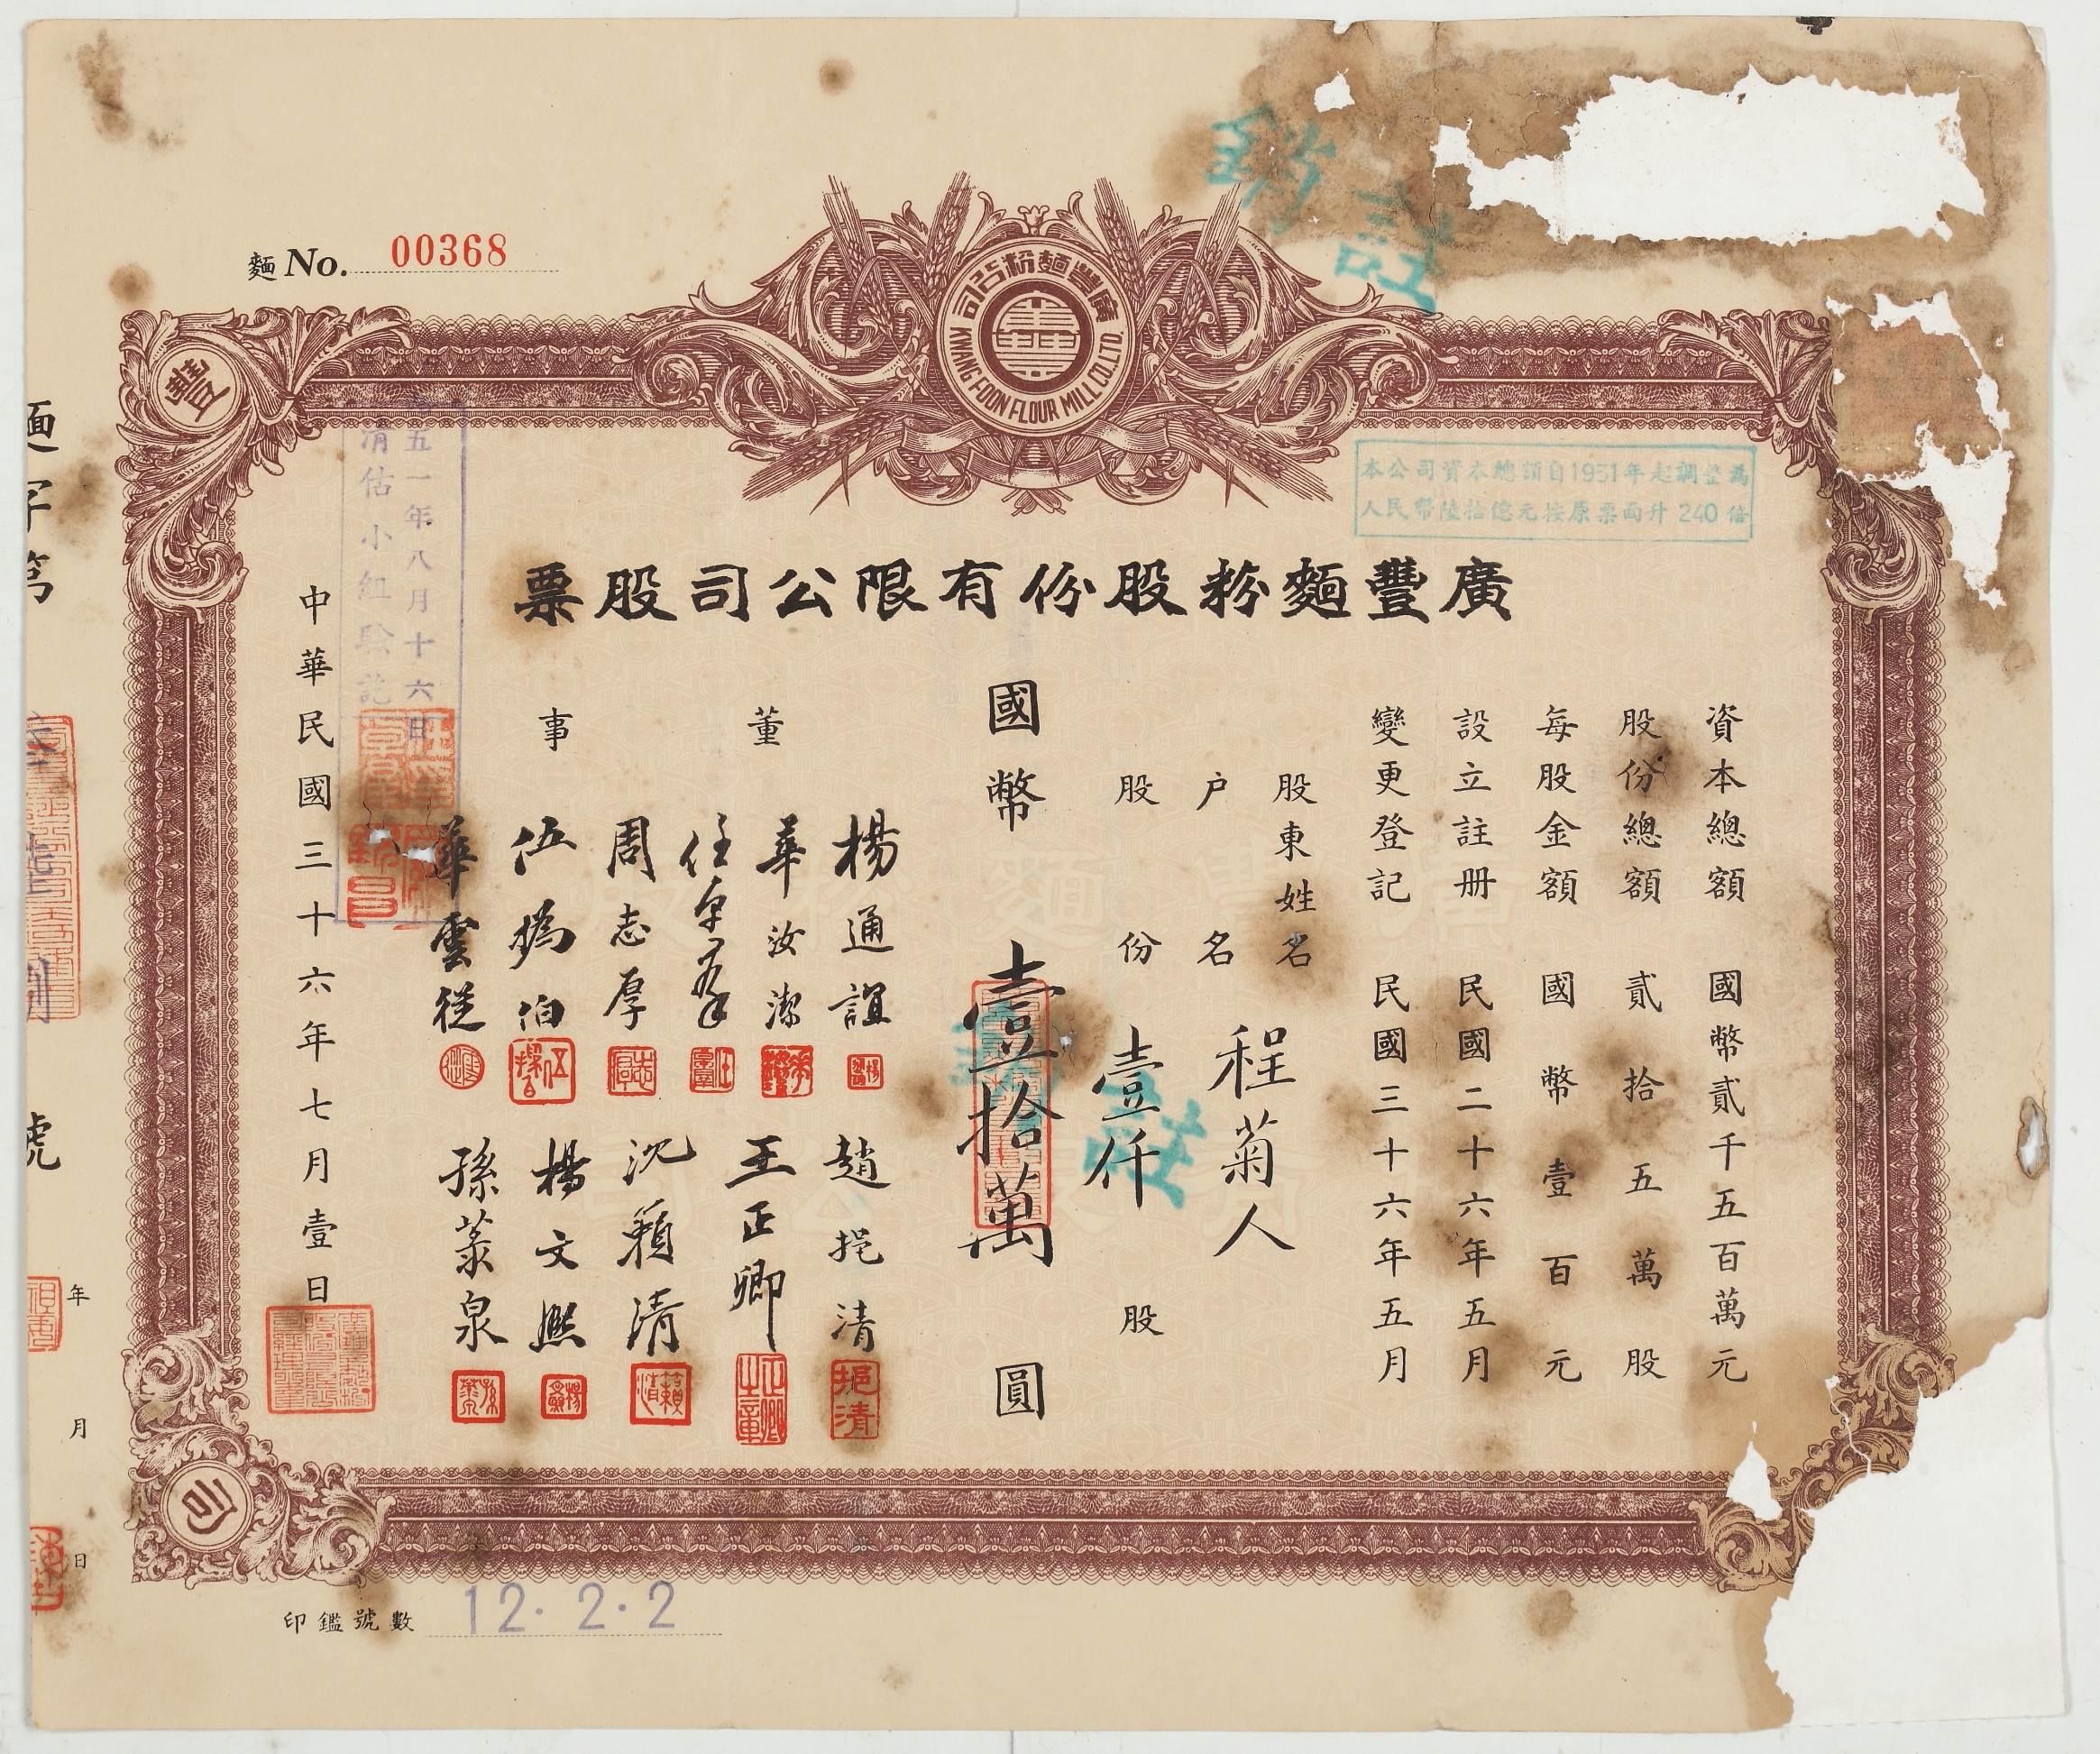 註銷
麵 No. 00368
廣豐麵粉公司
KWANG FOON FLOUR MILL CO. LTD.
豐
本公司資本總額自1951年起調整為
人民幣陸拾億元按原票面升240倍
廣豐麵粉股份有限公司股票
資本總額 國幣貳千五百萬元
股份總額 貳拾五萬股
每股金額 國幣壹百元
設立註册 民國二十六年五月
變更登記 民國三十六年五月
股東姓名
戶名 程菊人
股份 壹仟股
國幣 壹拾萬圓
董事
楊通誼
華汝潔
周志厚
華雲從
趙挹清
王正卿
沈籟清
楊文熙
挹清
正卿之章
籟清
五一年八月十六日
清估小組驗訖
中華民國三十六年七月壹日
號
年
月
日
司
印鑑號數 12.2.2